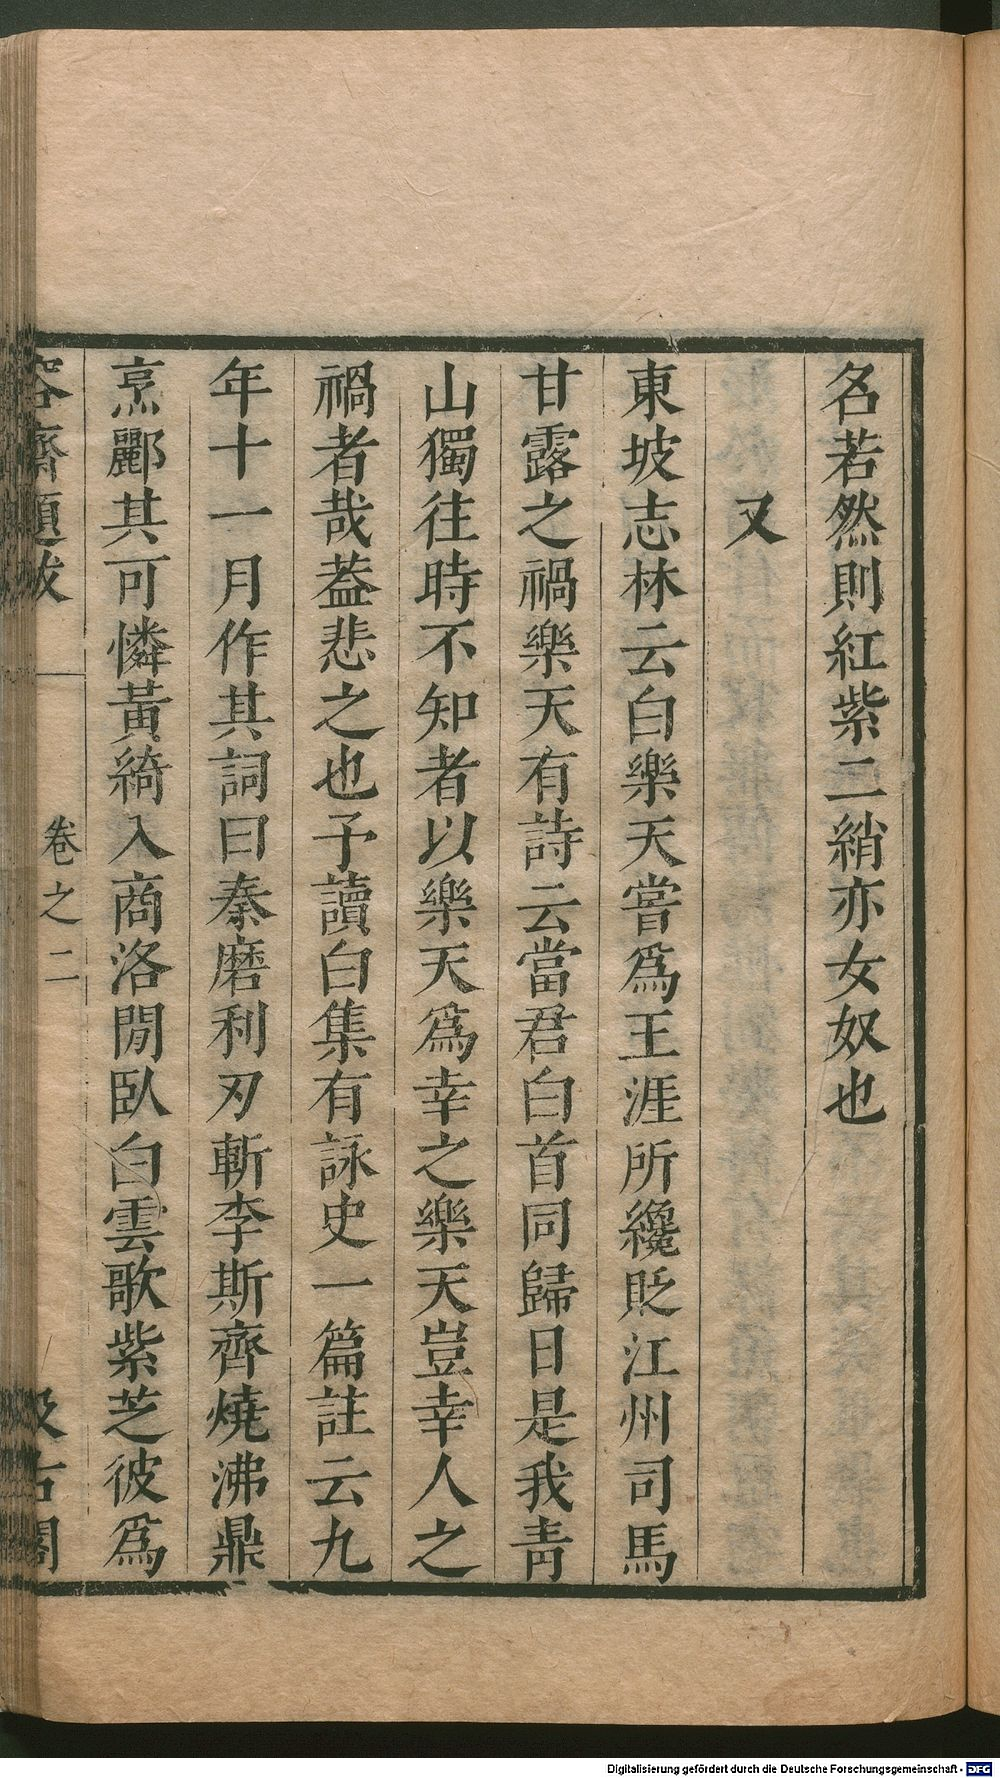 名若然則紅紫二綃亦女奴也
又
東坡志林云白樂天嘗爲王涯所纔貶江州司馬
甘露之禍樂天有詩云當君白首同歸日是我靑
山獨往時不知者以樂天爲幸之樂天豈幸人之
禍者哉葢悲之也予讀白集有詠史一篇註云九
年十一月作其詞曰秦磨利刃斬李斯齊燒沸鼎
烹酈其可憐黃綺入商洛閒臥白雲歌紫芝彼爲
容齋題跋
卷之二
汲古閣
Digitalisierung gefördert durch die Deutsche Forschungsgemeinschaft - DFG